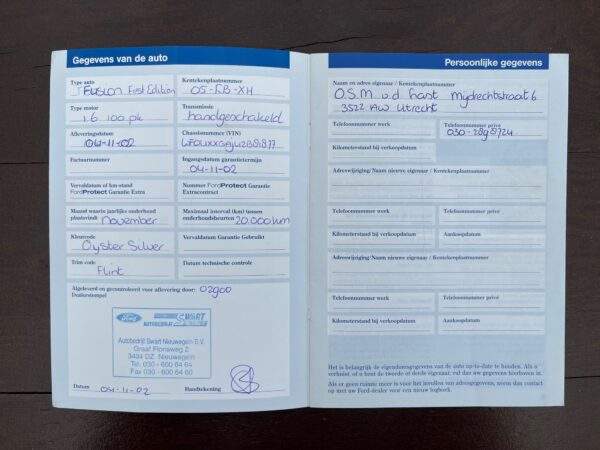 Gegevens van de auto
Type auto
Fusion First Edition
Kentekenplaatnummer
05-GB-XH
Type motor
1.6 100 pk
Transmissie
handgeschakeld
Afleveringsdatum
04-11-02
Chassisnummer (VIN)
Factuurnummer
Ingangsdatum garantietermijn
04-11-02
Vervaldatum of km-stand
FordProtect Garantie Extra
Nummer FordProtect Garantie
Extracontract
Maand waarin jaarlijks onderhoud
plaatsvindt november
Maximaal interval (km) tussen
onderhoudsbeurten 20.000 km
Kleurcode
Oyster Silver
Vervaldatum Garantie Gebruikt
Trim code
Flint
Datum technische controle
Afgeleverd en gecontroleerd voor aflevering door: 02900
Dealerstempel
Ford
SWART
AUTOBEDRIJF
Autobedrijf Swart Nieuwegein B.V.
Graaf Florisweg 2
3434 DZ Nieuwegein
Tel. 030 - 600 84 64
Fax 030 - 600 84 60
Datum 04-11-02
Handtekening
Persoonlijke gegevens
Naam en adres eigenaar / Kentekenplaatnummer
O.S.M. v.d. Mijdrechtstraat 6
3522 AW Utrecht
Telefoonnummer werk
Telefoonnummer privé
Kilometerstand bij verkoopdatum
Adreswijziging/Naam nieuwe eigenaar / Kentekenplaatnummer
Telefoonnummer werk
Telefoonnummer privé
Kilometerstand bij verkoopdatum
Aankoopdatum
Adreswijziging/Naam nieuwe eigenaar / Kentekenplaatnummer
Telefoonnummer werk
Telefoonnummer privé
Kilometerstand bij verkoopdatum
Aankoopdatum
Het is belangrijk de eigendomsgegevens van de auto up-to-date te houden. Als u
verhuist of u bent de tweede of derde eigenaar, vul dan uw gegevens hierboven in.
Als er geen ruimte meer is voor het invullen van adresgegevens, neem dan contact
op met uw Ford-dealer voor een nieuw logboek.